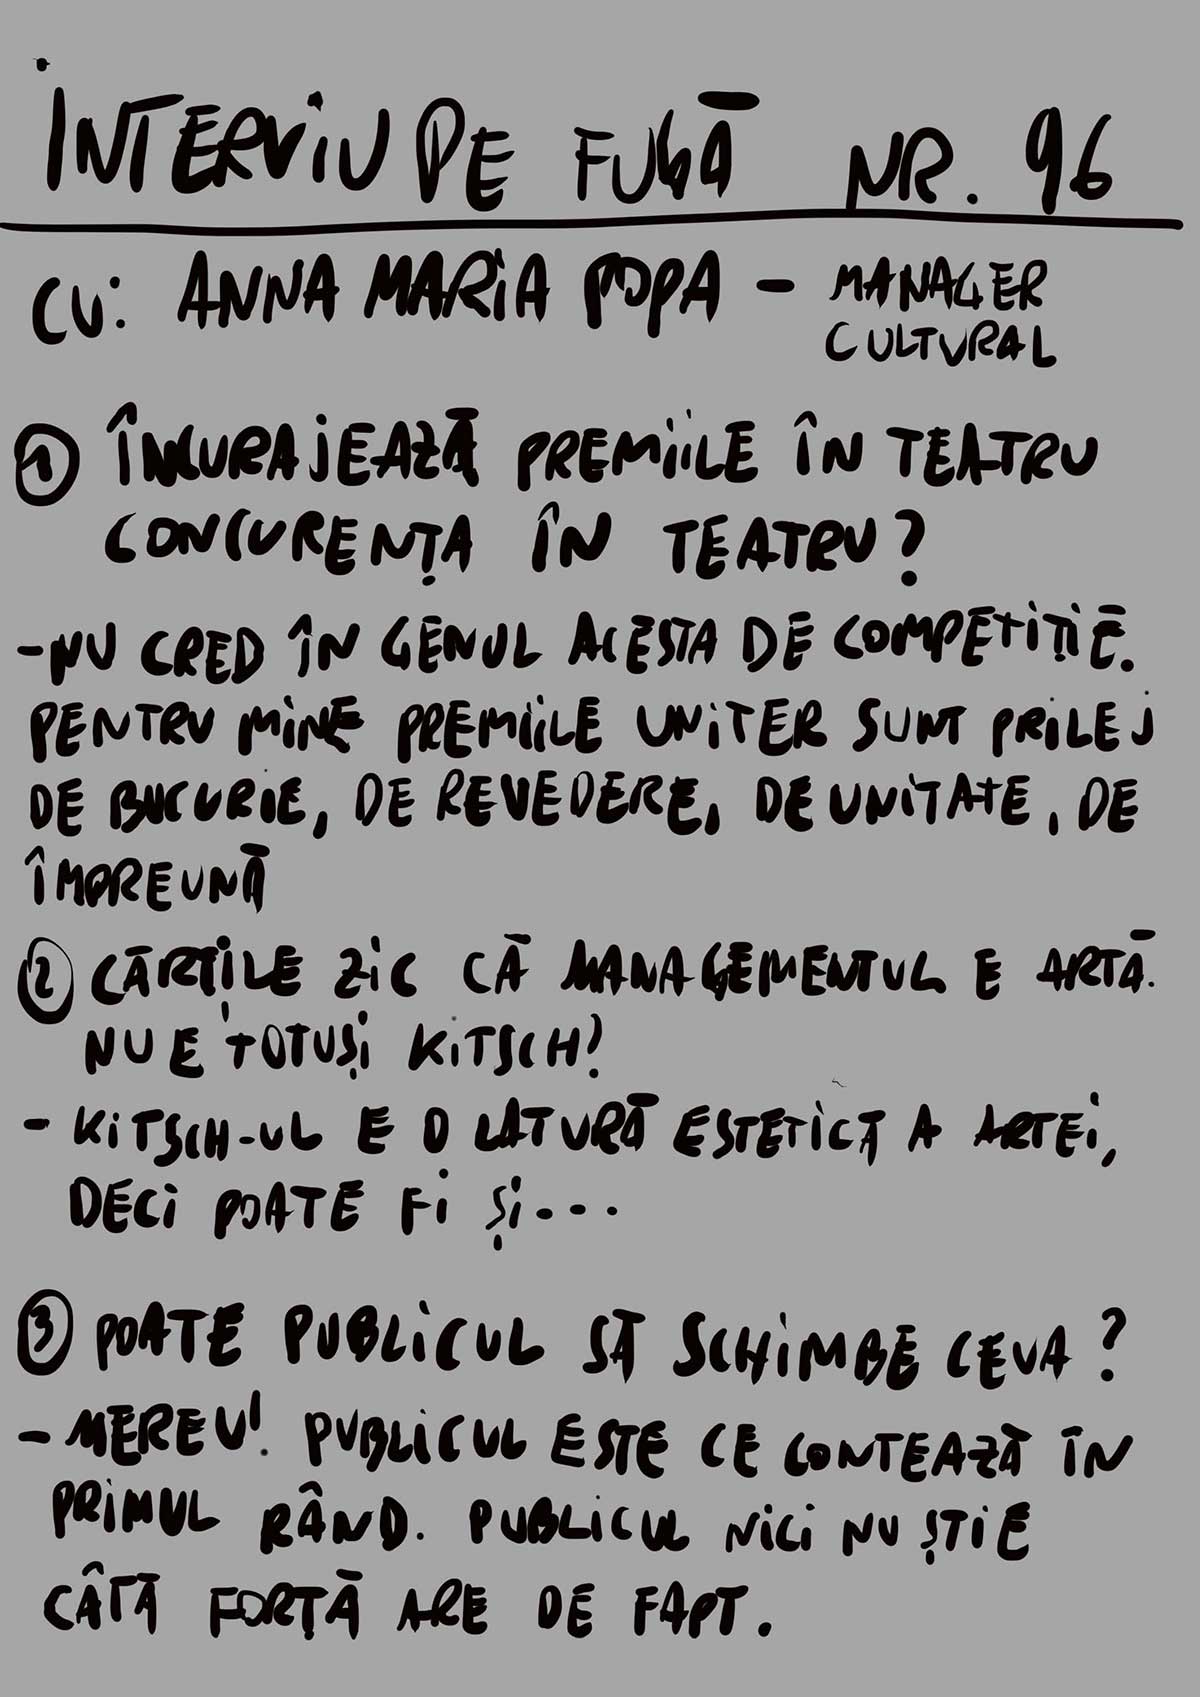 INTERVIU PE FUGĂ NR. 96
CU: ANNA MARIA POPA - MANAGER CULTURAL
1 ÎNCURAJEAZĂ PREMIILE ÎN TEATRU
CONCURENȚA ÎN TEATRU?
- NU CRED ÎN GENUL ACESTA DE COMPETIȚIE.
PENTRU MINE PREMIILE UNITER SUNT PRILEJ
DE BUCURIE, DE REVEDERE, DE UNITATE, DE
ÎMPREUNĂ
2 CĂRȚILE ZIC CĂ MANAGEMENTUL E ARTĂ.
NU E TOTUȘI KITSCH?
- KITSCH-UL E O LATURĂ ESTETICĂ A ARTEI,
DECI POATE FI ȘI...
3 POATE PUBLICUL SĂ SCHIMBE CEVA?
- MEREU! PUBLICUL ESTE CE CONTEAZĂ ÎN
PRIMUL RÂND. PUBLICUL NICI NU ȘTIE
CÂTĂ FORȚĂ ARE DE FAPT.